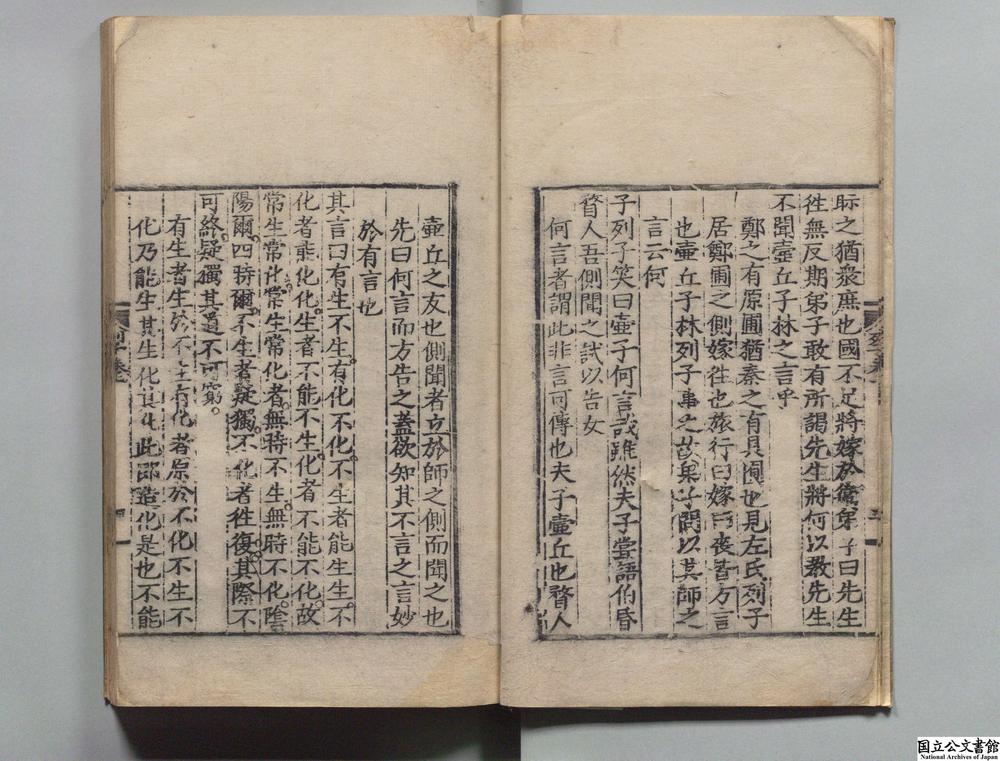 眎之猶衆庶也國不足將嫁於衞弟子曰先生
徃無反期弟子敢有所謁先生將何以教先生
不聞壷丘子林之言乎
鄭之有原圃猶秦之有具囿也見左氏列子
居鄭圃之側嫁徃也旅行曰嫁曰夜皆方言
也壷丘子林列子事之故弟子問以其師之
言云何
子列子笑曰壷子何言哉雖然夫子嘗語伯昏
瞀人吾側聞之試以告女
何言者謂此非言可傳也夫子壷丘也瞀人
壷丘之友也側聞者立於師之側而聞之也
先曰何言而方告之蓋欲知其不言之言妙
於有言也
其言曰有生不生。有化不化。不生者能生生。不
化者能化化。生者不能不生。化者不能不化。故
常生常化。常生常化者。無時不生。無時不化。陰
陽爾。四時爾。不生者疑獨。不化者徃復。其際不
可終。疑獨其道不可窮。
有生者生於不生有化者原於不化不生不
化乃能生其生化其化此卽造化是也不能
國立公文書館
National Archives of Japan